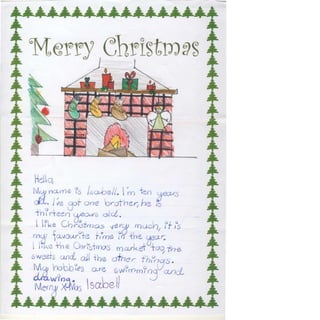 Merry Christmas
Hello,
My name is Isabell. I'm ten years
old. I've got one brother, he is
thirteen years old.
I like Christmas very much, it is
my favourite time in the year.
I like the Christmas market too, the
sweets and all the other things.
My hobbies are swimming and
drawing.
Merry X-Mas Isabell